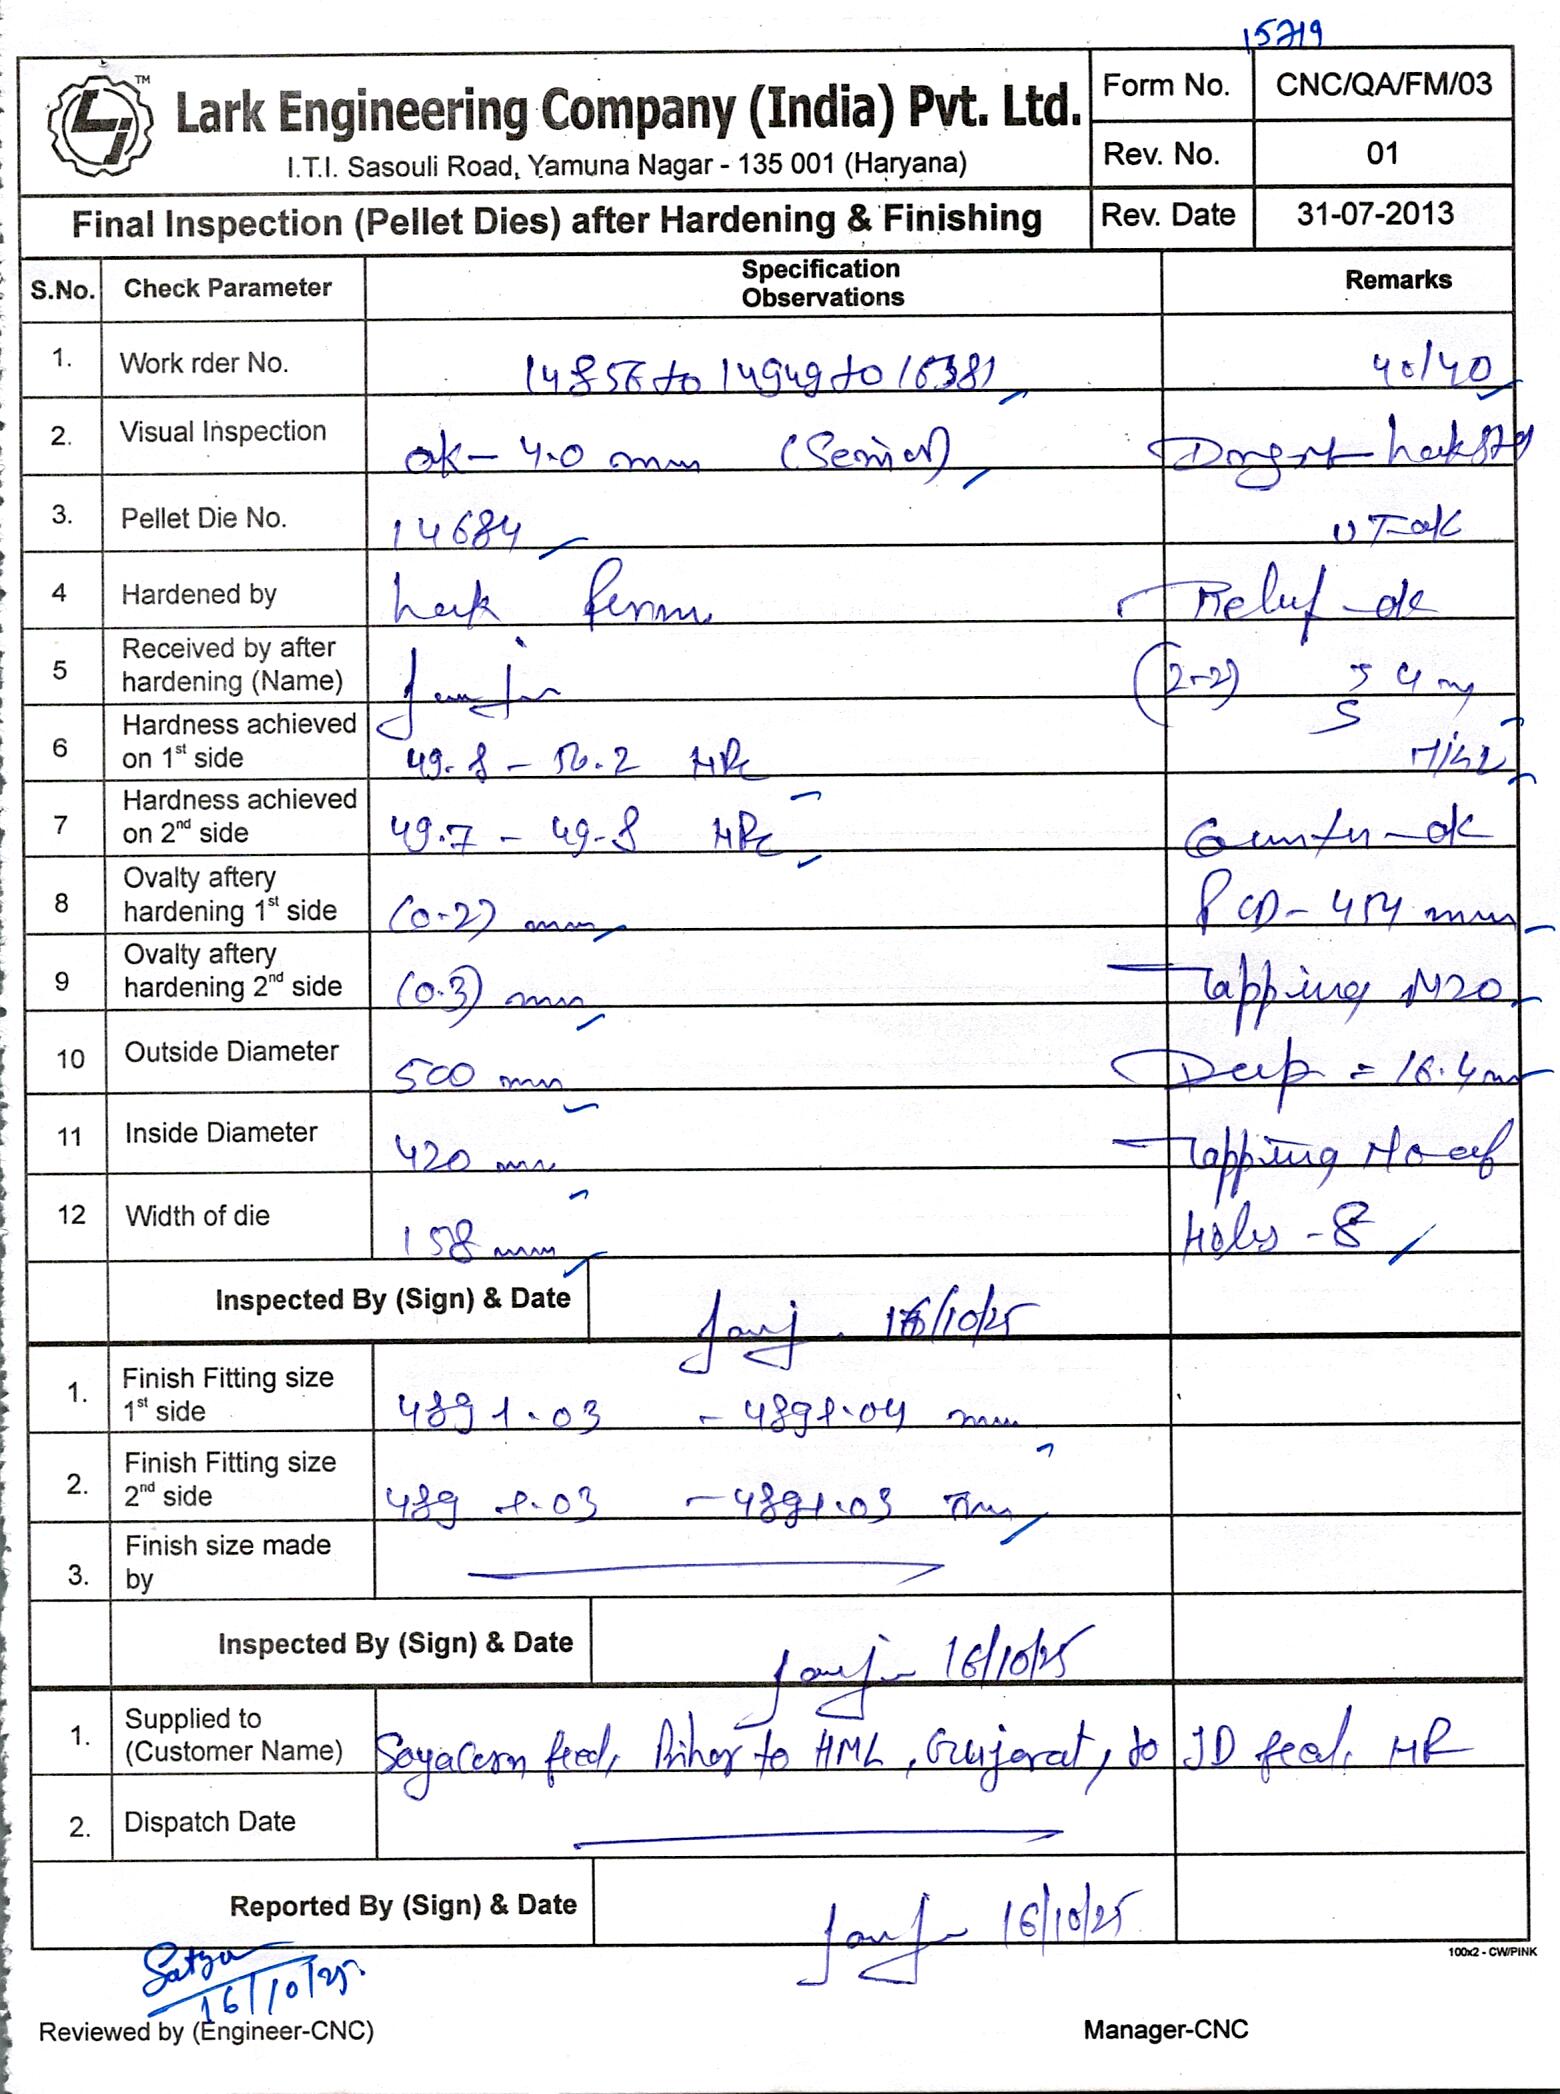 15719
TM
Lark Engineering Company (India) Pvt. Ltd.
I.T.I. Sasouli Road, Yamuna Nagar - 135 001 (Haryana)
Form No. CNC/QA/FM/03
Rev. No. 01
Final Inspection (Pellet Dies) after Hardening & Finishing
Rev. Date 31-07-2013
S.No. Check Parameter Specification Observations Remarks
1. Work rder No. 14856 to 14949 to 40/40
2. Visual Inspection ok - 4.0 mm
3. Pellet Die No. 14684 UT-ok
4 Hardened by Lark Relief - ok
5 Received by after hardening (Name) (2-2)
6 Hardness achieved on 1st side 49.8 - 50.2 HRc
7 Hardness achieved on 2nd side 49.7 - 49.8 HRc Counter - ok
8 Ovalty aftery hardening 1st side (0.2) mm PCD - 454 mm
9 Ovalty aftery hardening 2nd side (0.3) mm Tapping M20
10 Outside Diameter 500 mm Deep = 16.4 mm
11 Inside Diameter 420 mm Tapping No of
12 Width of die 158 mm Holes - 8
Inspected By (Sign) & Date 16/10/25
1. Finish Fitting size 1st side 489 +.03 - 489+.04 mm
2. Finish Fitting size 2nd side 489 +.03 - 489+.03 mm
3. Finish size made by
Inspected By (Sign) & Date 16/10/25
1. Supplied to (Customer Name) Soyacorn feed, Bihar to HML, Gujarat, to JD feed, HR
2. Dispatch Date
Reported By (Sign) & Date 16/10/25
100x2 - CW/PINK
Satya
16/10/25.
Reviewed by (Engineer-CNC) Manager-CNC